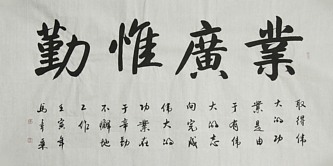 業廣惟勤
取得伟
大的功
業是由
于有伟
大的志
向完成
伟大的
功業在
于辛勤
不懈地
工作
壬寅年